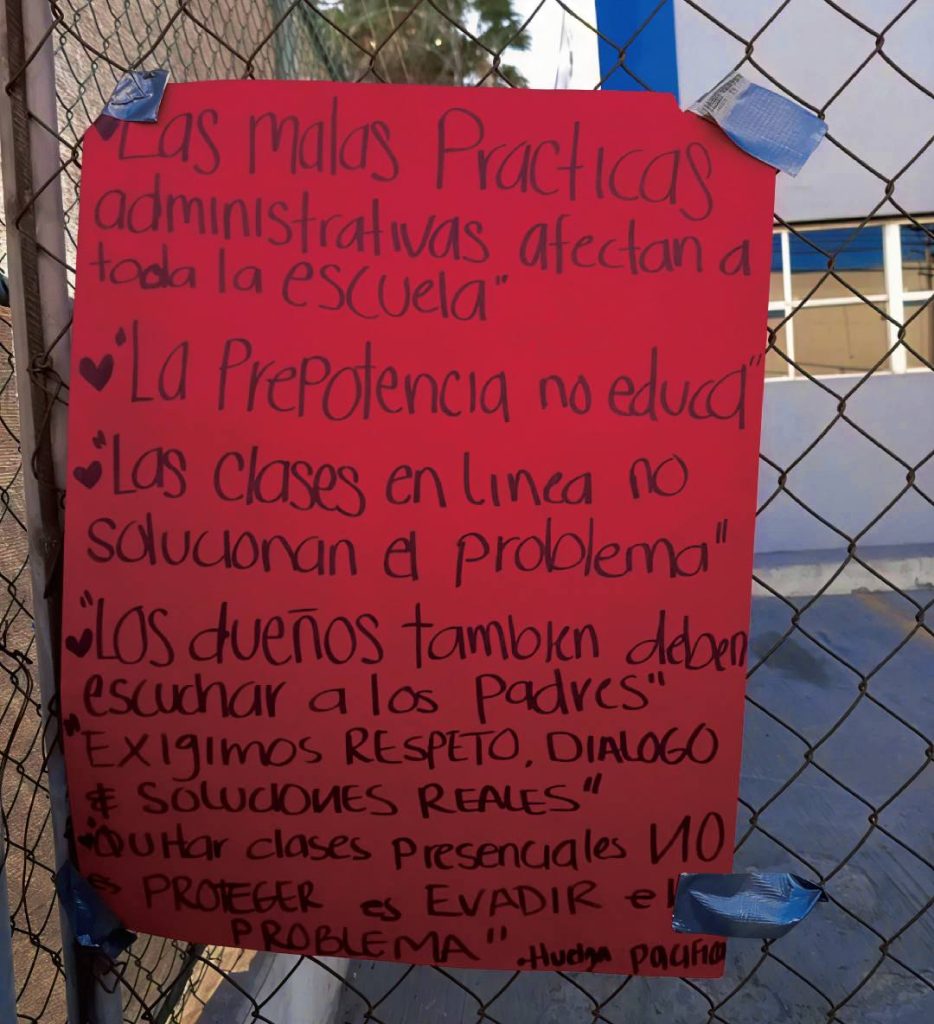 "Las malas Practicas
administrativas afectan a
toda la escuela"
"La Prepotencia no educa"
"Las clases en linea no
solucionan el problema"
"Los dueños tambien deben
escuchar a los Padres"
"Exigimos RESPETO, DIALOGO
& SOLUCIONES REALES"
"Quitar clases presenciales NO
es PROTEGER es EVADIR el
PROBLEMA"
.Huelga pacifica